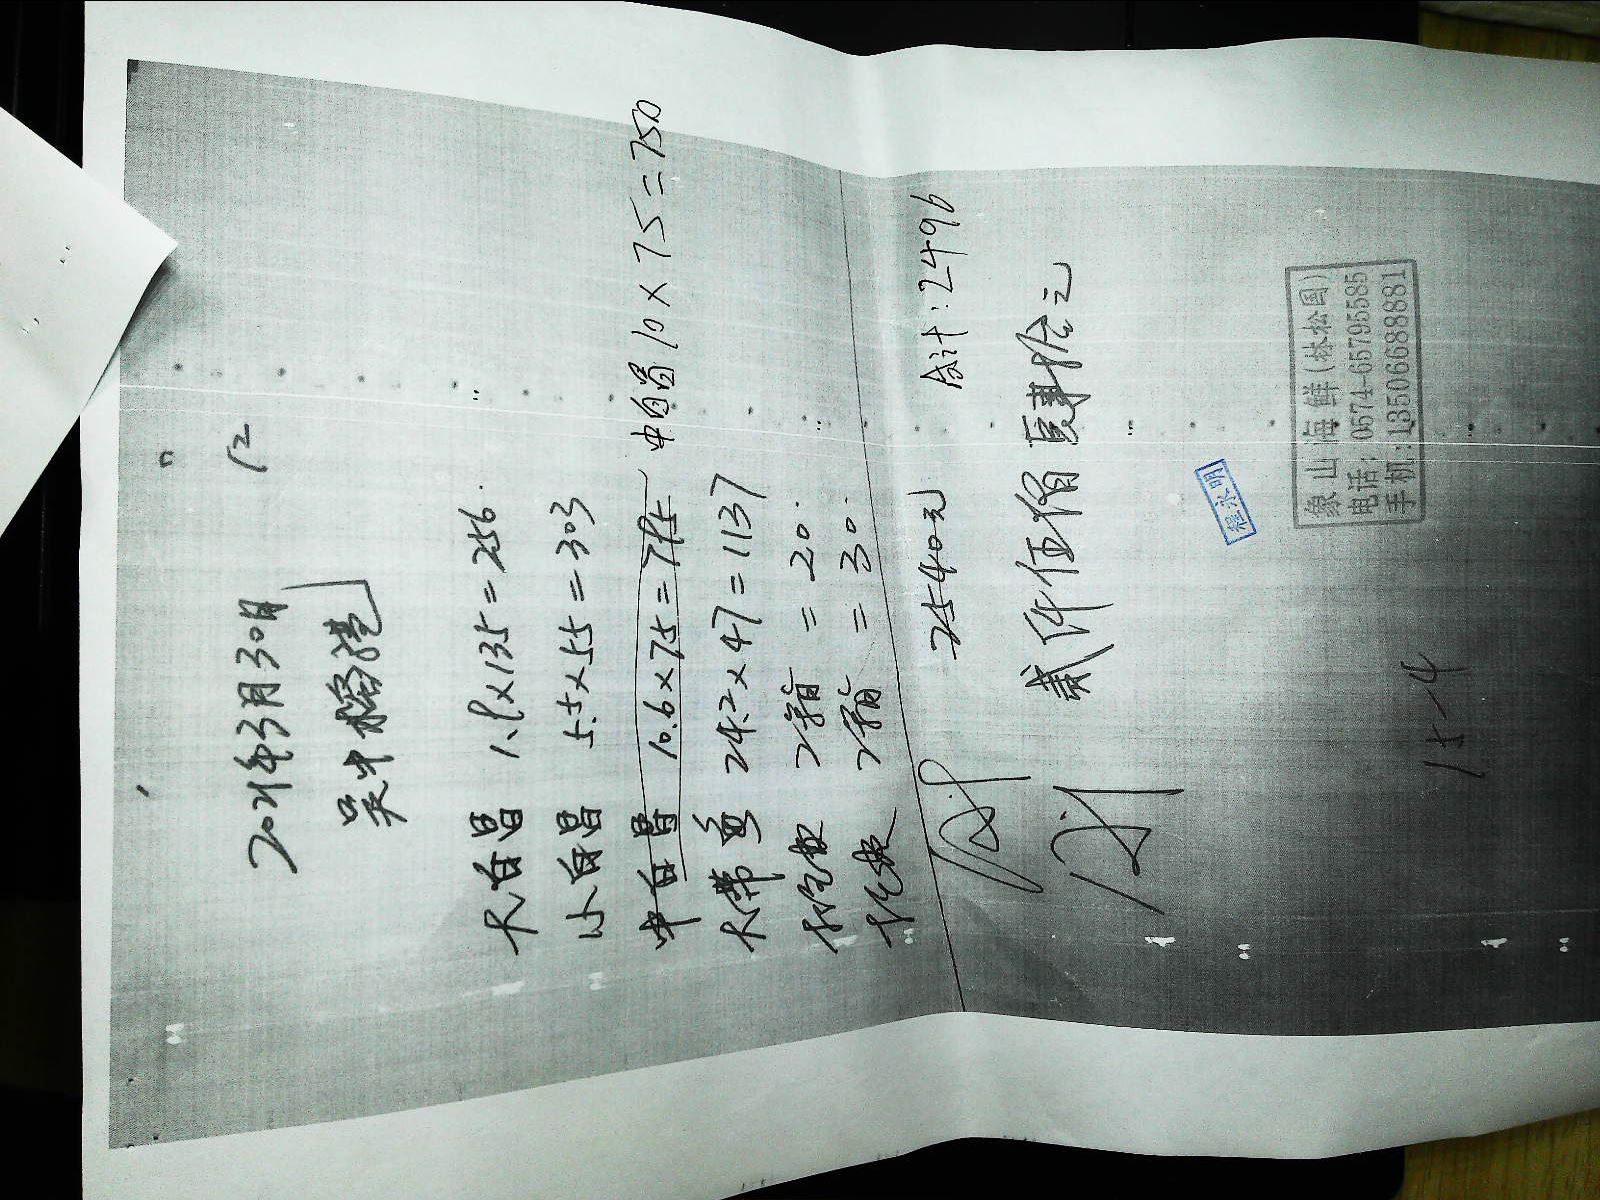 12
2021年3月30日
吴中榕港
大白昌 1.9×135=256
小白昌 5.5×55=303
中白昌 10.6×75=795 中白昌 10×75=750
大带鱼 24.2×47=1137
2箱=20
2箱=30
2540元 合计:2496
贰仟伍佰肆拾元
程永明
象山海鲜(林松国)
电话:0574-65795585
手机:13506688881
15-4